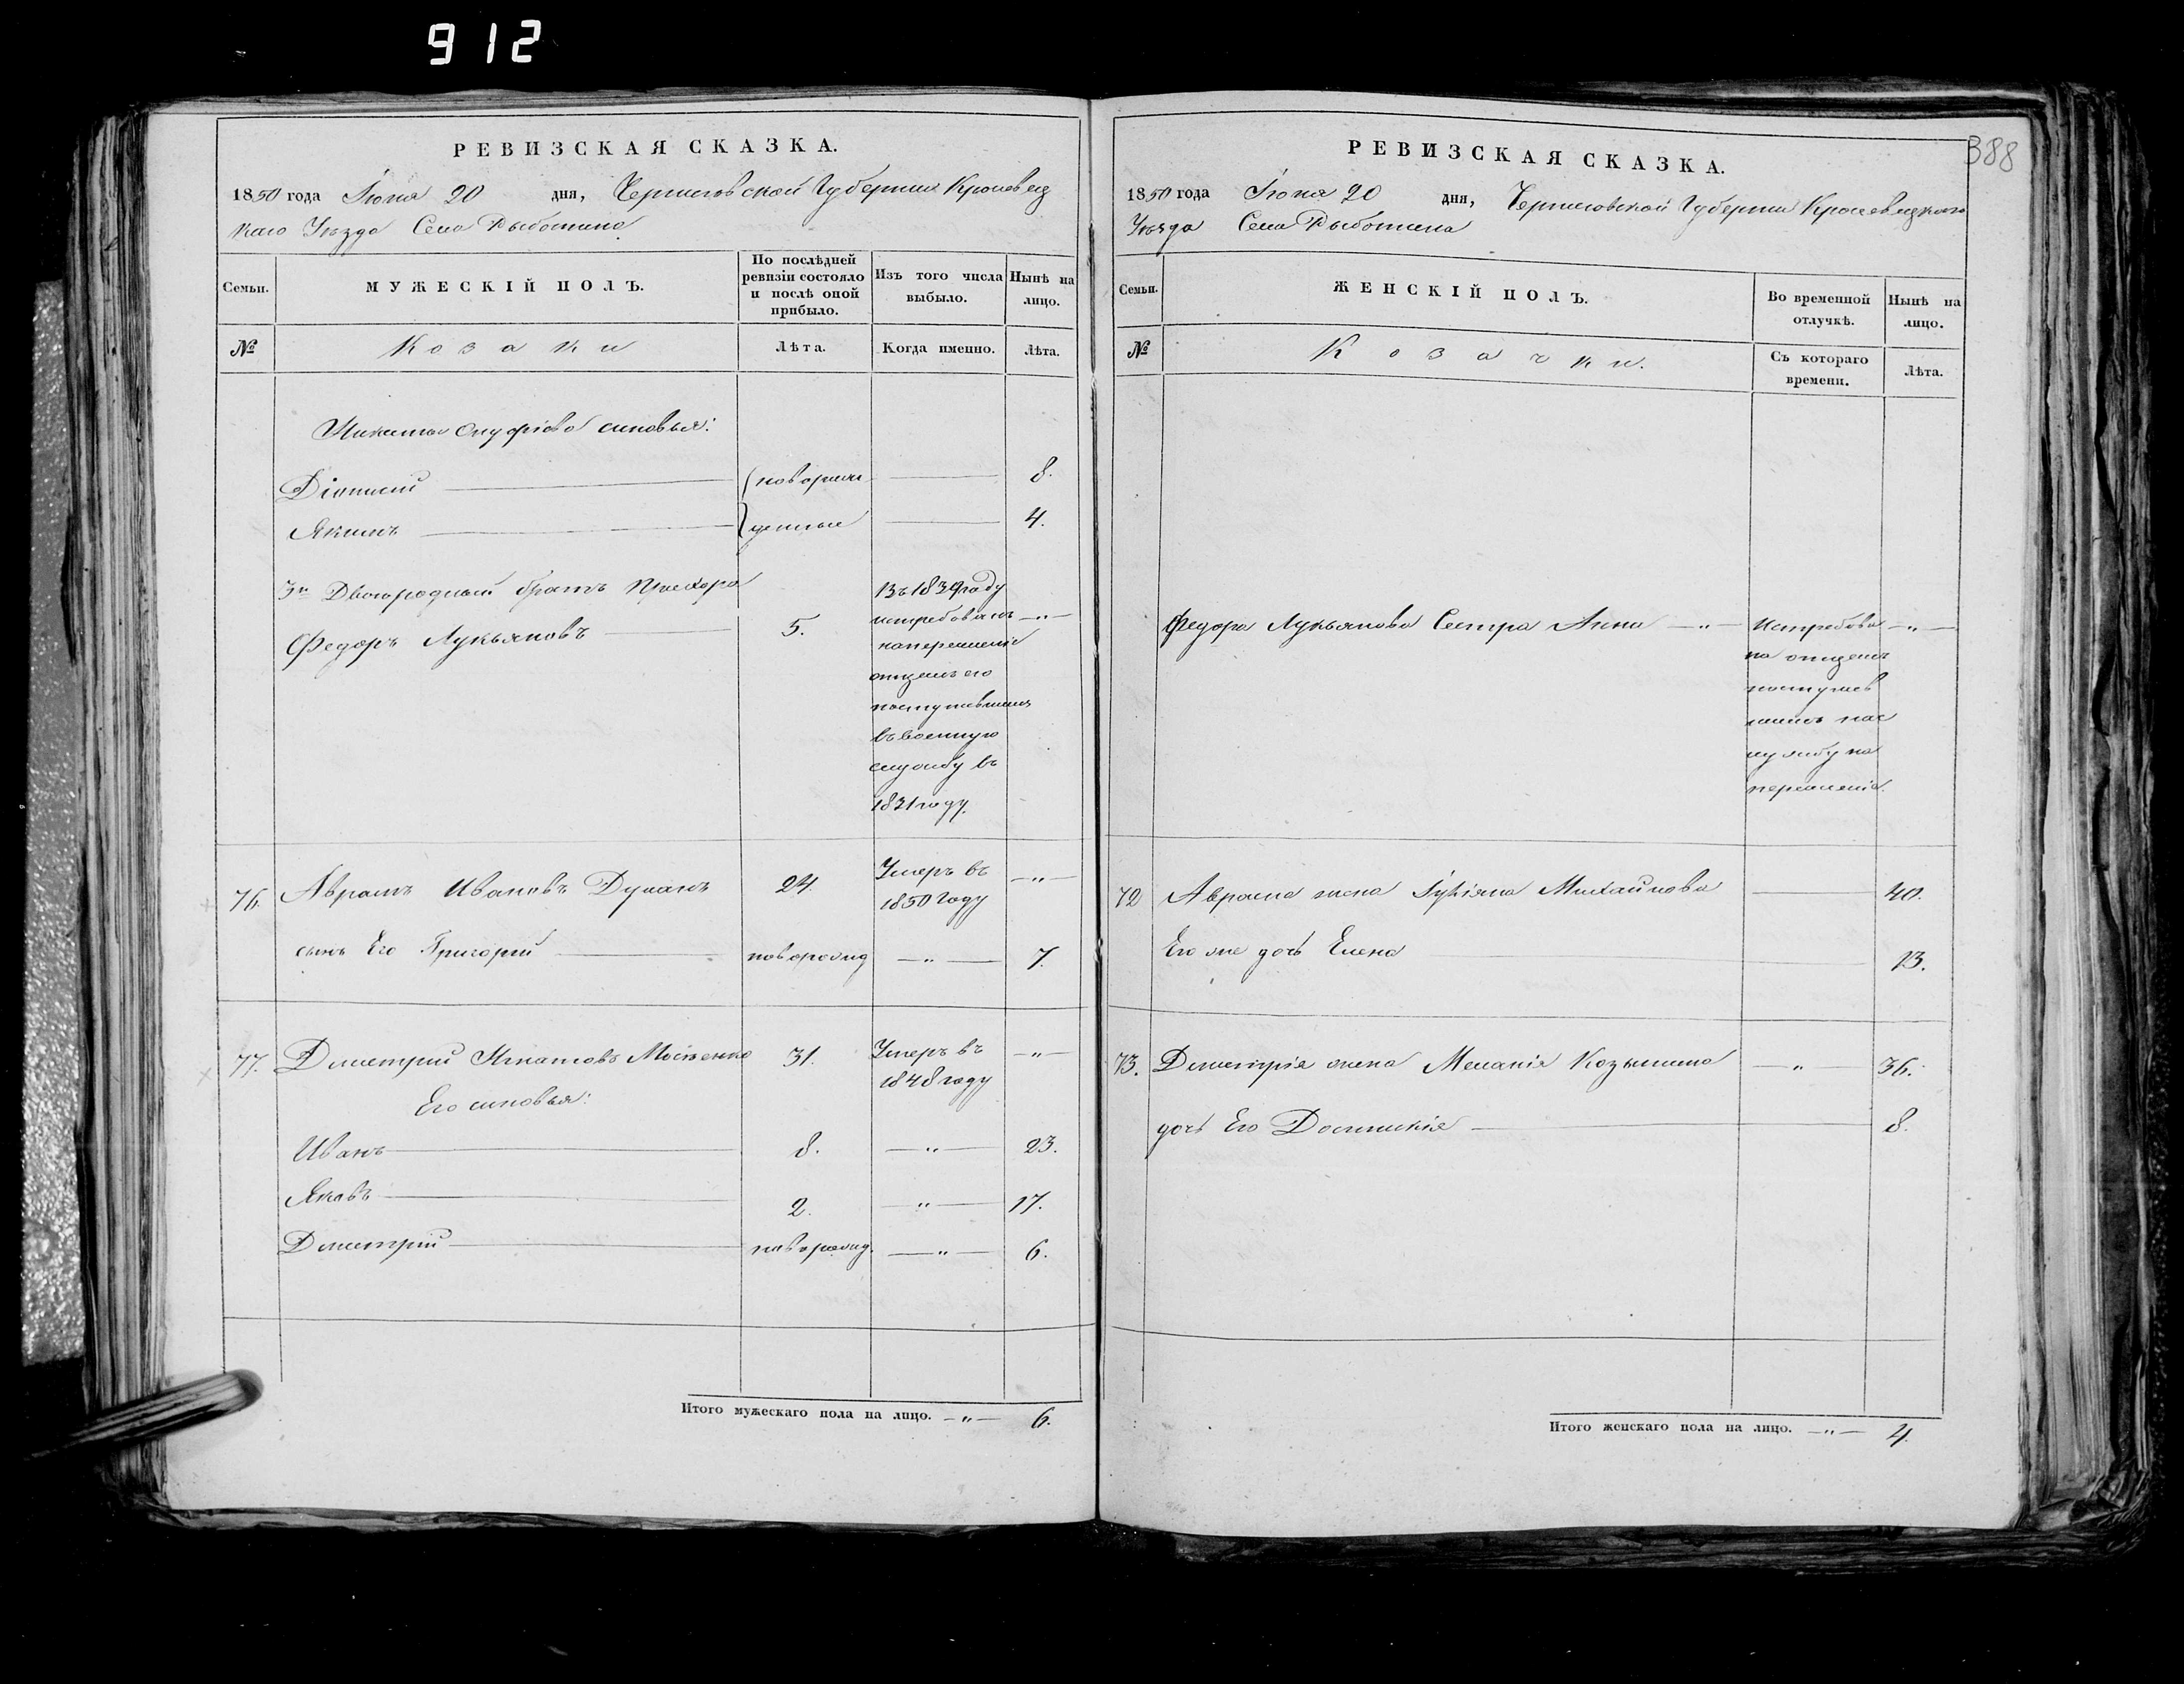 912
388
РЕВИЗСКАЯ СКАЗКА.
1850 года Іюня 20 дня, Черниговской Губерніи Кролевец
каго Уѣзда Села Рыботина
Семьи.
МУЖЕСКІЙ ПОЛЪ.
По послѣдней ревизіи состояло и послѣ оной прибыло.
Изъ того числа выбыло.
Нынѣ на лицо.
№
Козаки
Лѣта.
Когда именно.
Лѣта.
Никиты Онуфріева синовья:
Діонисій новорож 8.
Якимъ денные 4.
3й Двоюродный братъ Прохора
Федоръ Лукьяновъ 5.
Въ 1839 году
истребованъ —"—
отцемъ его
поступившимъ
въ военную
службу въ
1831 году.
76. Аврамъ Ивановъ 24. Умеръ въ —"—
1850 Году
сынъ Его Григорій новорожд —"— 7.
77. Дмитрій Игнатовъ 31. Умеръ въ —"—
1848 году
Его синовья:
Иванъ 8. —"— 23.
Яковъ 2. —"— 17.
Дмитрій новорожд. —"— 6.
Итого мужескаго пола на лицо. —"— 6.
РЕВИЗСКАЯ СКАЗКА.
1850 года Іюня 20 дня, Черниговской Губерніи Кролевецкаго
Уѣзда Села Рыботина
Семьи.
ЖЕНСКІЙ ПОЛЪ.
Во временной отлучкѣ.
Нынѣ на лицо.
№
Козачки.
Съ котораго времени.
Лѣта.
Федора Лукьянова Сестра Анна —"— Истребова —"—
на отцемъ
поступив
шимъ на с
лужбу на
72 Аврама жена Михайлова 40.
Его же дочь Елена 13.
73. Дмитрія жена Меланія Козьмина —"— 36.
дочь Его Домникія 8.
Итого женскаго пола на лицо. —"— 4.